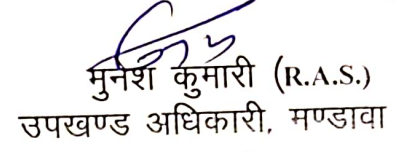 मुनेश कुमारी (R.A.S.)
उपखण्ड अधिकारी, मण्डावा